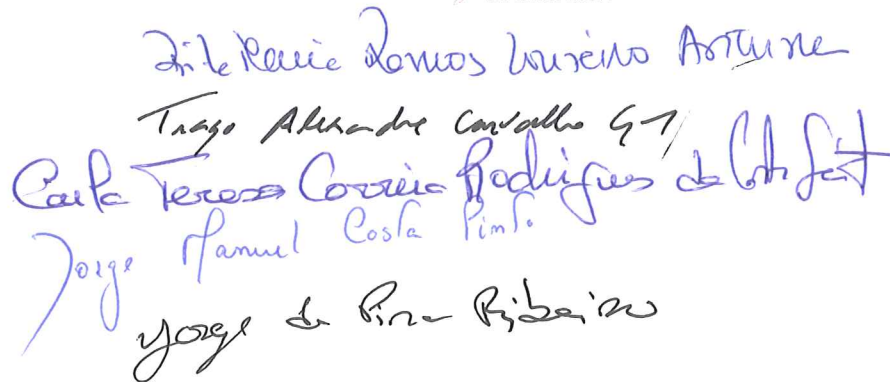 Ramos Loureiro Antunes
Tiago Alexandre Carvalho
Carla Teresa Correia Rodrigues da Costa
Jorge Manuel Costa Pinto
Jorge de Pina Ribeiro